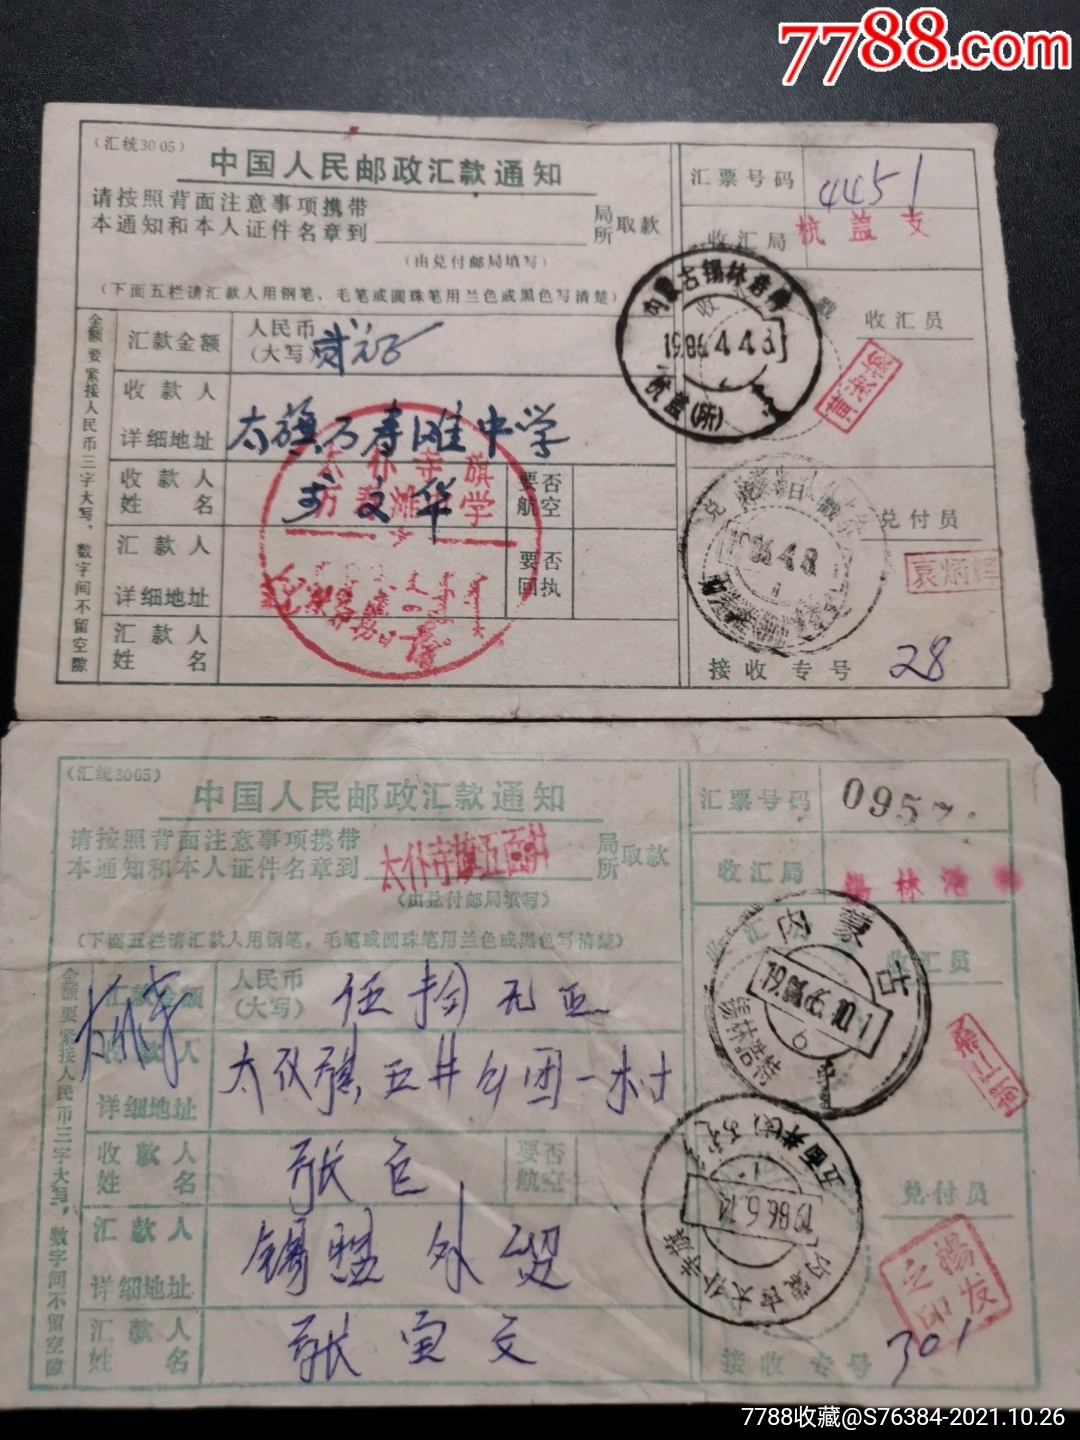 7788.com
(汇统3005)
中国人民邮政汇款通知
请按照背面注意事项携带
本通知和本人证件名章到 局所取款
(由兑付邮局填写)
(下面五栏请汇款人用钢笔、毛笔或圆珠笔用兰色或黑色写清楚)
金额要紧接人民币三字大写,数字间不留空隙
汇款金额 人民币(大写)
收款人详细地址 太旗万寿滩中学
收款人姓名 文华
要否航空
汇款人详细地址
要否回执
汇款人姓名
太仆寺旗
万寿滩 学
汇票号码 4451
收汇局 杭盖支
内蒙古锡林浩特
1986.4.4.
杭盖(所)
收汇员
兑付日戳
1986.4.8.
兑付员
袁炳辉
接收专号 28
(汇统3005)
中国人民邮政汇款通知
请按照背面注意事项携带
本通知和本人证件名章到 太仆寺旗五面井 局所取款
(由兑付邮局填写)
(下面五栏请汇款人用钢笔,毛笔或圆珠笔用兰色或黑色写清楚)
金额要紧接人民币三字大写,数字间不留空隙
汇款金额 人民币(大写) 伍拾元正
收款人详细地址 太仆旗五井乡团一村
收款人姓名 张
要否航空
汇款人详细地址 锡盟外贸
汇款人姓名 张 文
汇票号码 0957
收汇局 锡林浩
收汇员
内蒙古
1986.6.10.
锡林浩特
内蒙古太仆寺旗
1986.6.14
五面井
兑付员
杨发之印
接收专号 301
7788收藏@S76384-2021.10.26